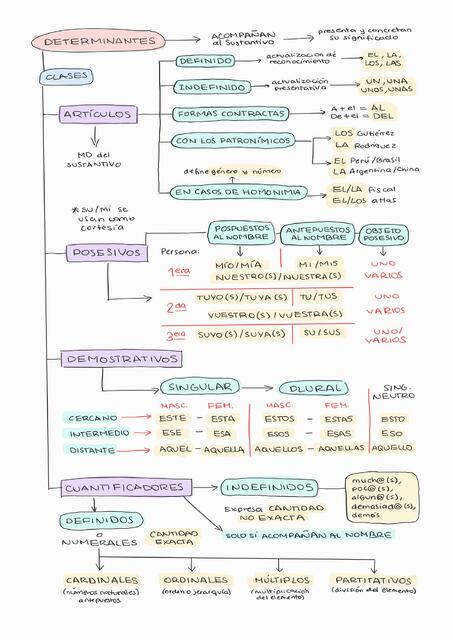 DETERMINANTES
ACOMPAÑAN
al Sustantivo
presenta y concretan
su significado
CLASES
DEFINIDO
actualización de
reconocimiento
EL, LA,
LOS, LAS
INDEFINIDO
actualización
presentativa
UN, UNA
UNOS, UNAS
ARTÍCULOS
FORMAS CONTRACTAS
A + el = AL
De + el = DEL
MD del
SUSTANTIVO
CON LOS PATRONÍMICOS
LOS Gutiérrez
LA Rodríguez
EL Perú/Brasil
LA Argentina/China
define género y número
EN CASOS DE HOMONIMIA
EL/LA fiscal
EL/LOS atlas
* SU/MI se
usan como
cortesía
POSPUESTOS
AL NOMBRE
ANTEPUESTOS
AL NOMBRE
OBJETO
POSESIVO
POSESIVOS
Persona:
1era
MÍO/MÍA
MI/MIS
UNO
NUESTRO(S)/NUESTRA(S)
VARIOS
2da
TUYO(S)/TUYA(S)
TU/TUS
UNO
VUESTRO(S)/VUESTRA(S)
VARIOS
3era
SUYO(S)/SUYA(S)
SU/SUS
UNO/
VARIOS
DEMOSTRATIVOS
SINGULAR
PLURAL
SING.
NEUTRO
MASC. FEM. MASC. FEM.
CERCANO ESTE - ESTA ESTOS - ESTAS ESTO
INTERMEDIO ESE - ESA ESOS - ESAS ESO
DISTANTE AQUEL - AQUELLA AQUELLOS - AQUELLAS AQUELLO
CUANTIFICADORES
INDEFINIDOS
much@(s),
poc@(s),
algun@(s),
demasiad@(s),
demás
Expresa CANTIDAD
NO EXACTA
DEFINIDOS
o
NUMERALES
CANTIDAD
EXACTA
SOLO SI ACOMPAÑAN AL NOMBRE
CARDINALES
(números naturales)
antepuestos
ORDINALES
(orden o jerarquía)
MÚLTIPLOS
(multiplicación
del elemento)
PARTITATIVOS
(división del elemento)